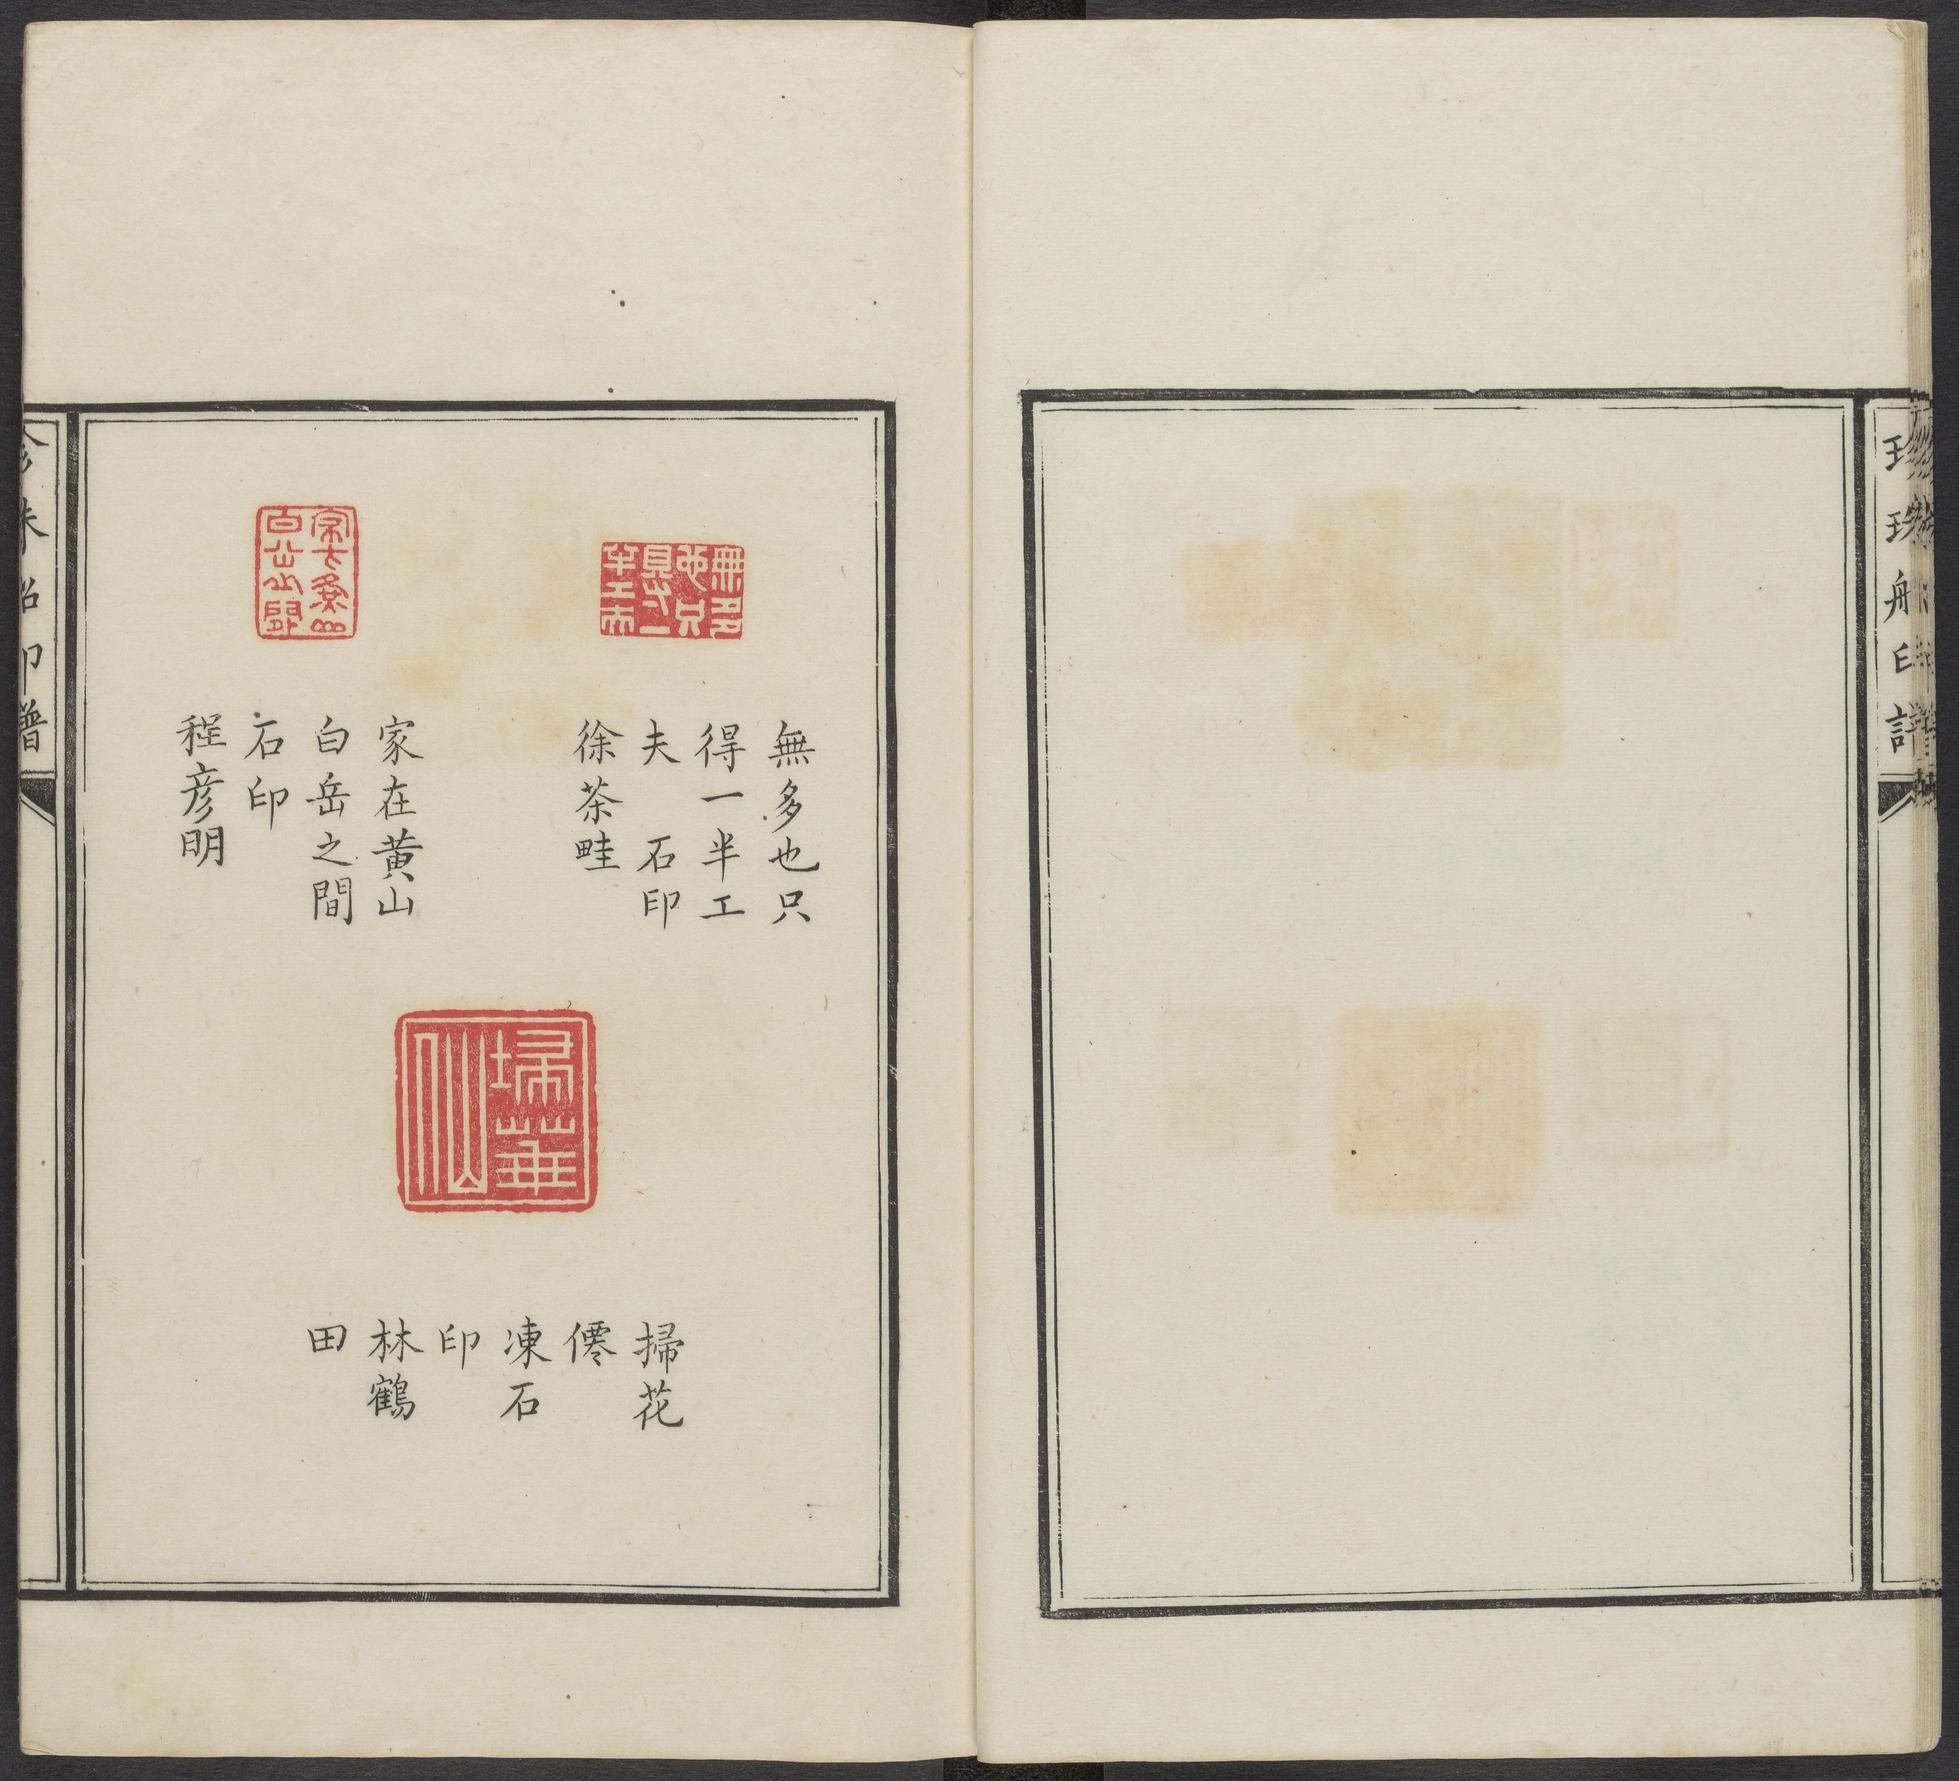 珍珠船印譜
無多也只
得一半工
夫　石印
徐茶畦
家在黃山
白岳之間
石印
程彥明
掃花
僊
凍石
印
林鶴
田
珍珠船印譜